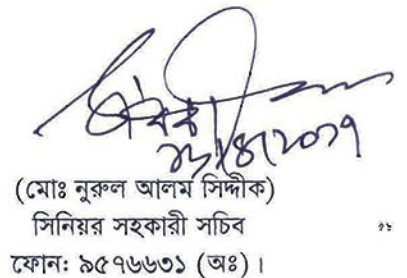 (মোঃ নুরুল আলম সিদ্দীক)
সিনিয়র সহকারী সচিব
ফোন: ৯৫৭৬৬৩১ (অঃ)।